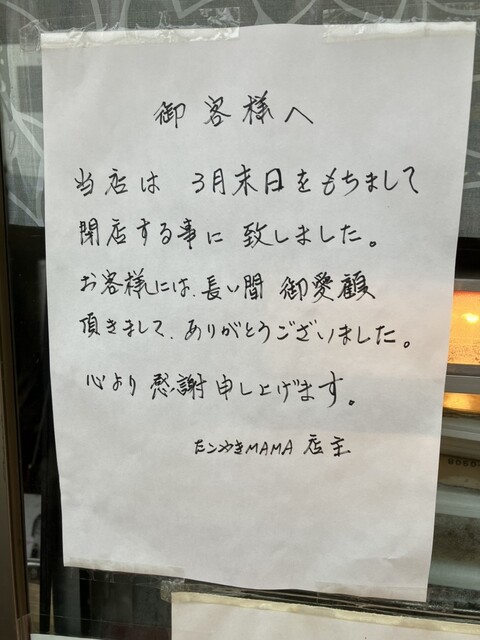 御客様へ
当店は 3月末日をもちまして
閉店する事に 致しました。
お客様には、長い間 御愛顧
頂きまして、ありがとうございました。
心より 感謝申し上げます。
たこやきMAMA 店主